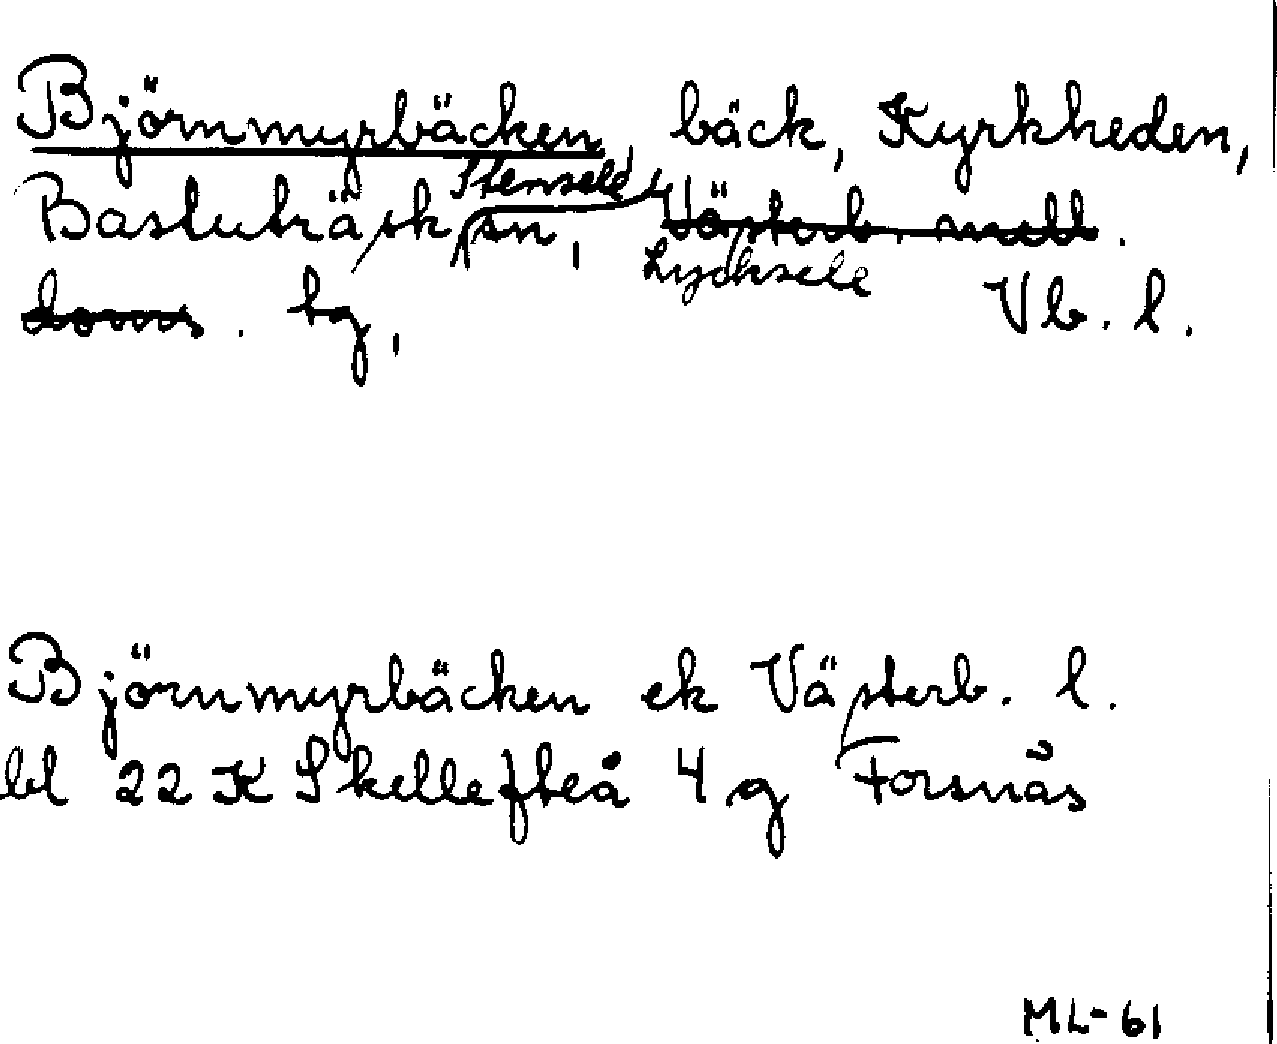 Björnmyrbäcken bäck, Kyrkheden,
Stensele
Bastuträsk sn, Västerb. mell.
Lycksele
doms. hg, Vb. l.
Björnmyrbäcken ek Västerb. l.
bl 22 K Skellefteå 4 g Forsnäs
ML-61